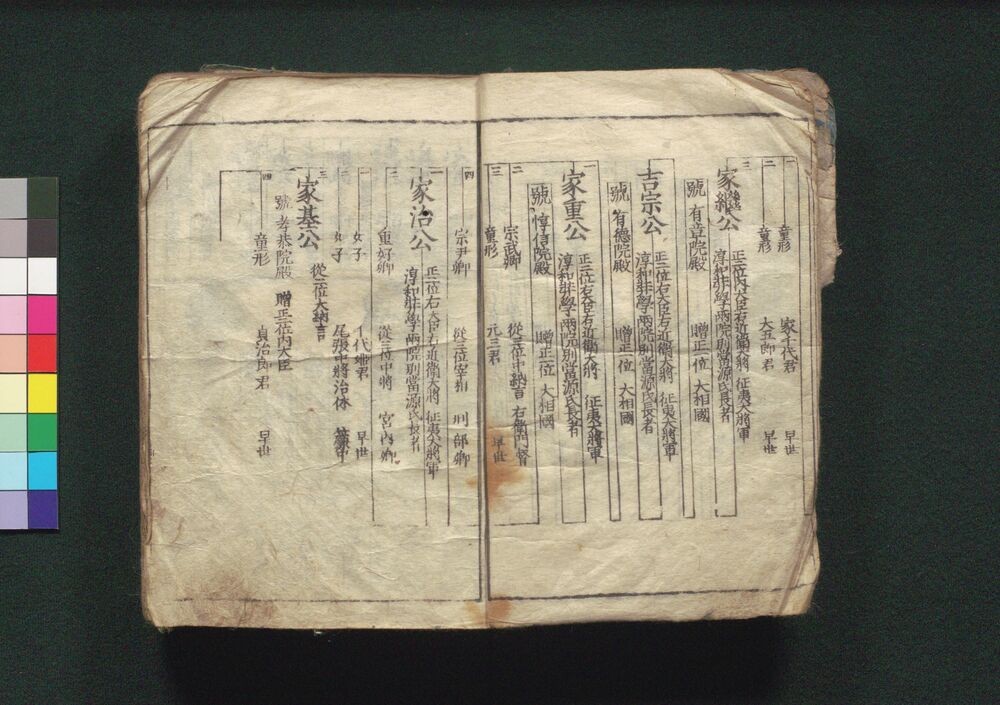 一 童形 家千代君 早世
二 童形 大五郎君 早世
三 家繼公 正二位内大臣右近衛大將 征夷大將軍
淳和奬學兩院別當源氏長者
號 有章院殿 贈正一位 大相國
吉宗公 正二位右大臣右近衛大將 征夷大將軍
淳和奬學兩院別當源氏長者
號 有德院殿 贈正一位 大相國
一 家重公 正二位右大臣右近衛大將 征夷大將軍
淳和奬學兩院別當源氏長者
號 惇信院殿 贈正一位 大相國
二 宗武卿 從三位中納言 右衛門督
三 童形 元三君 早世
四 宗尹卿 從三位宰相 刑部卿
一 家治公 正二位右大臣右近衛大將 征夷大將軍
淳和奬學兩院別當源氏長者
二 重好卿 從三位中將 宮内卿
一 女子 千代姫君 早世
二 女子 尾張中將治休
三 家基公 從二位大納言
號 孝恭院殿 贈正二位内大臣
四 童形 貞治郎君 早世